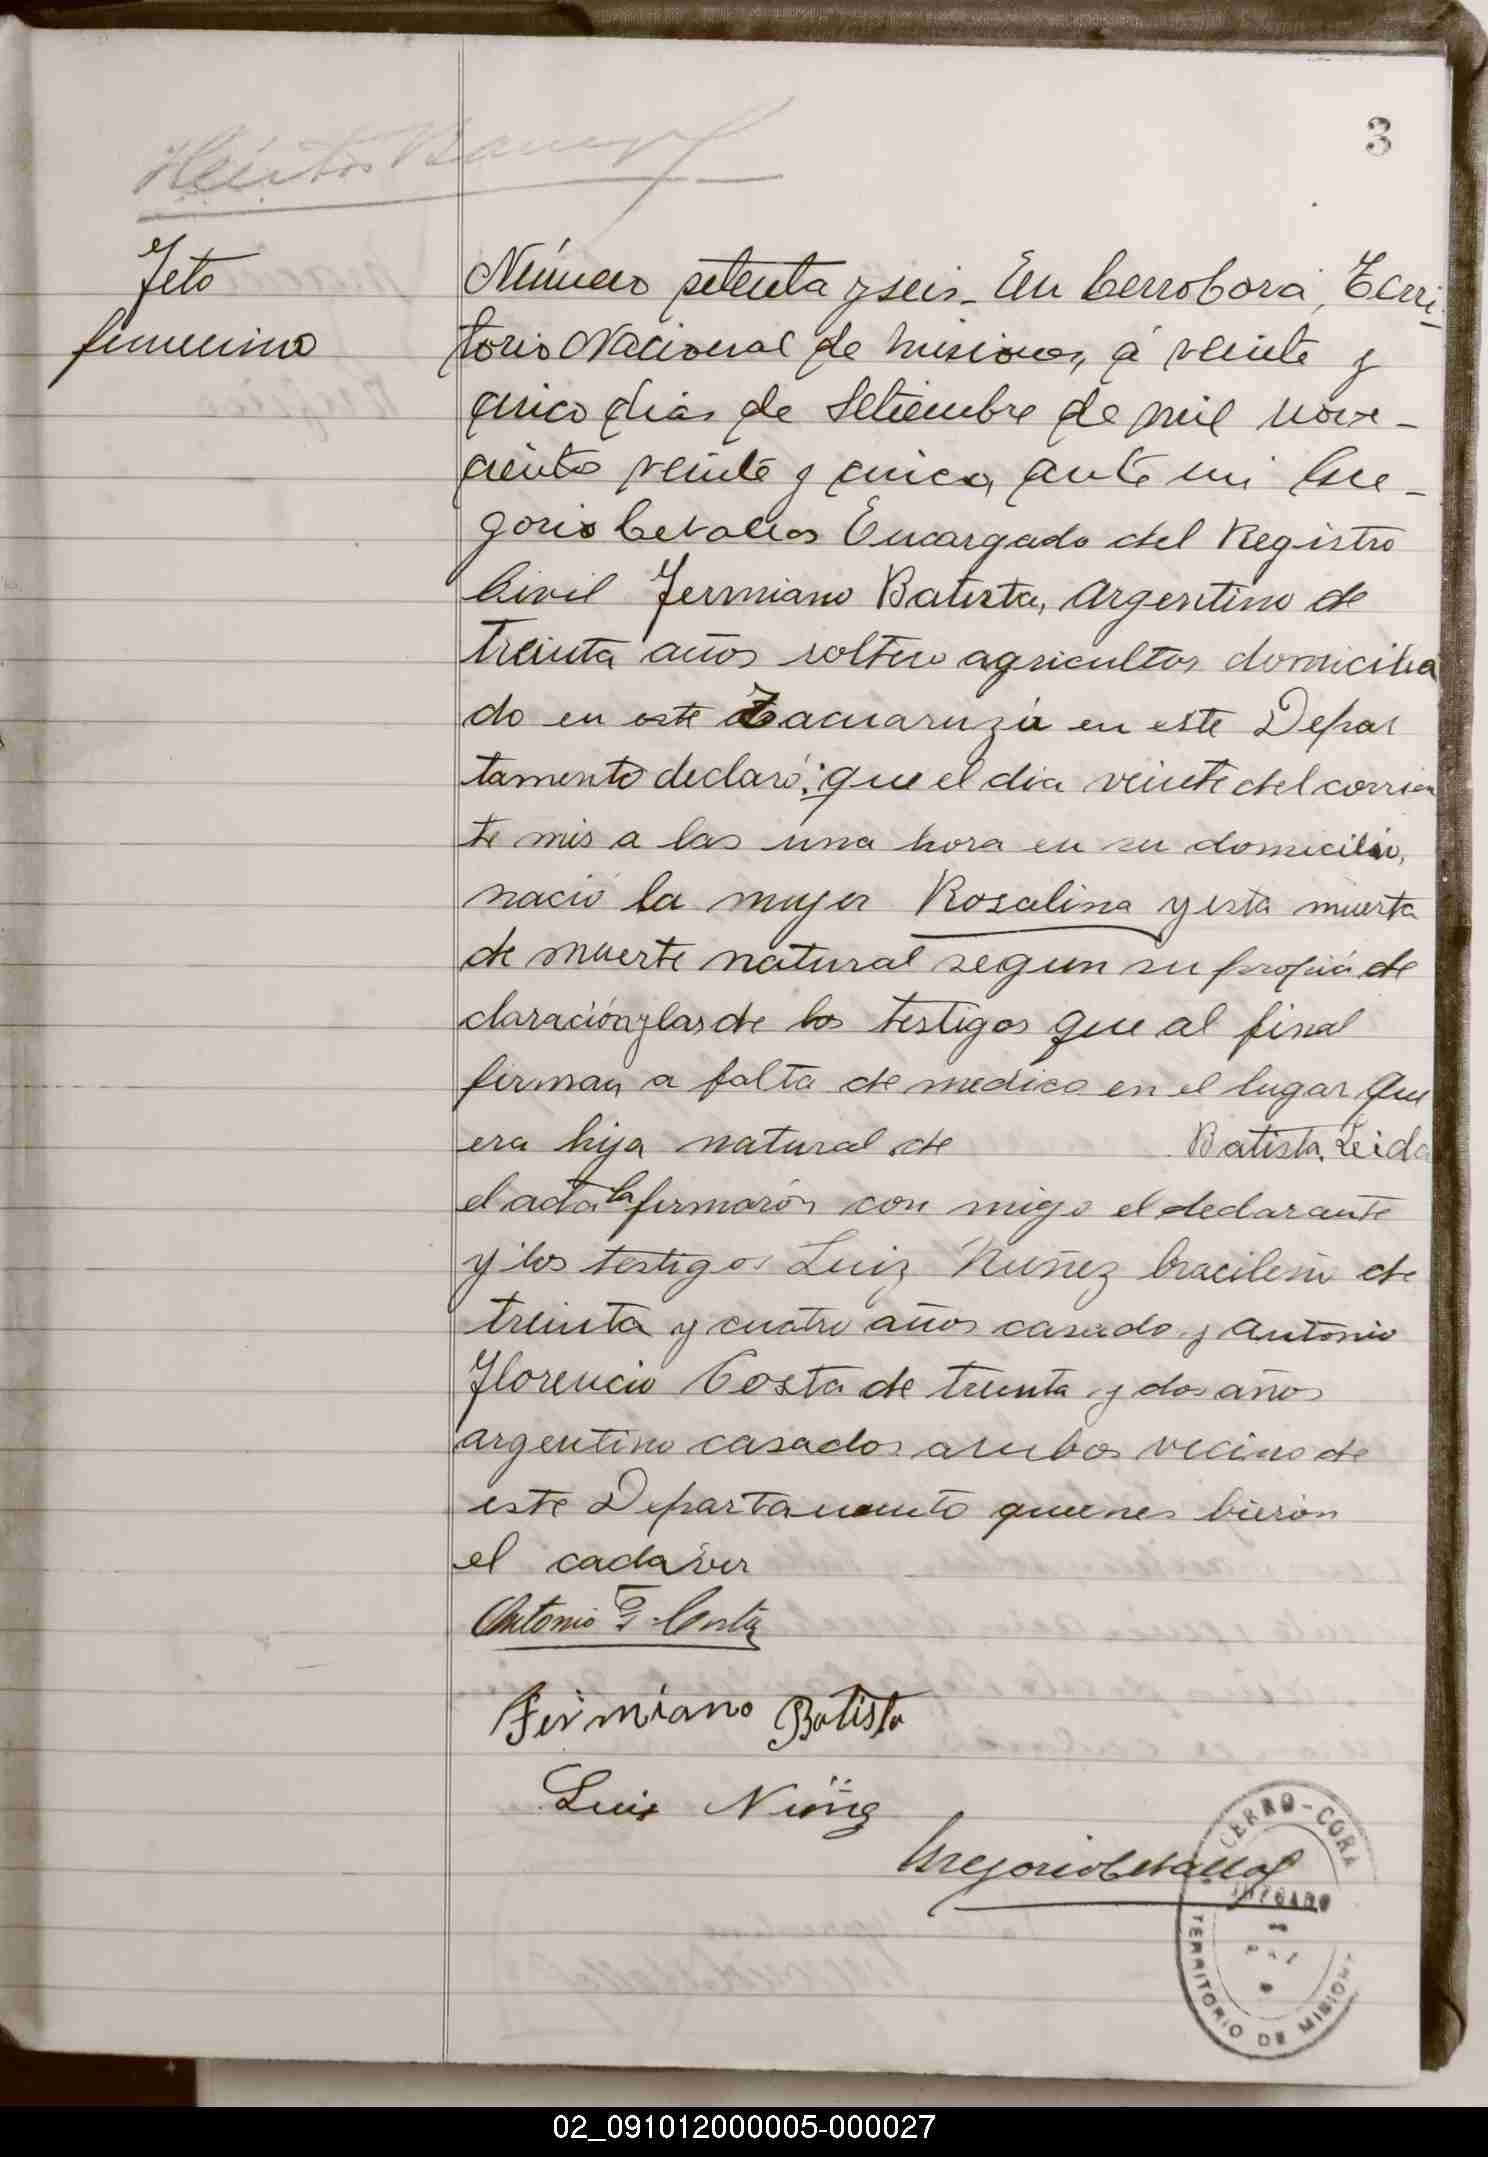 3
Feto
femenino
Número setenta y seis_ En Cerro Corá, Terri_
torio Nacional de Misiones, á veinte y
cinco dias de Setiembre de mil nove_
ciento veinte y cinco, ante mi Gre_
gorio Cevallos Encargado del Registro
Civil Fermiano Batista, Argentino de
treinta años soltero agricultor domicilia
do en este Tacuaruzú en este Depar
tamento declaró: que el dia veinte del corrien
te mis a las una hora en su domicilio,
nació la mujer Rosalina y esta muerta
de muerte natural segun su propia de
claración y las de los testigos que al final
firman, a falta de medico en el lugar que
era hija natural de Batista. Leida
el acta la firmarón con migo el declarante
y los testigos Luiz Nuñez bracileño de
treinta y cuatro años casado y Antonio
Florencio Costa de treinta y dos años
argentino casados ambos vecino de
este Departamento quienes bieron
el cadaver
Antonio F. Costa
Fermiano Batista
Luis Nuñez
Gregorio Cevallos
CERRO-CORA
JUZGADO
TERRITORIO DE MISIONES
02_091012000005-000027